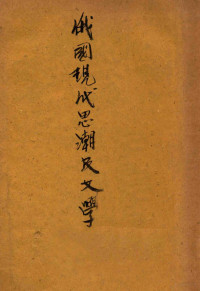 俄國現代思潮及文學